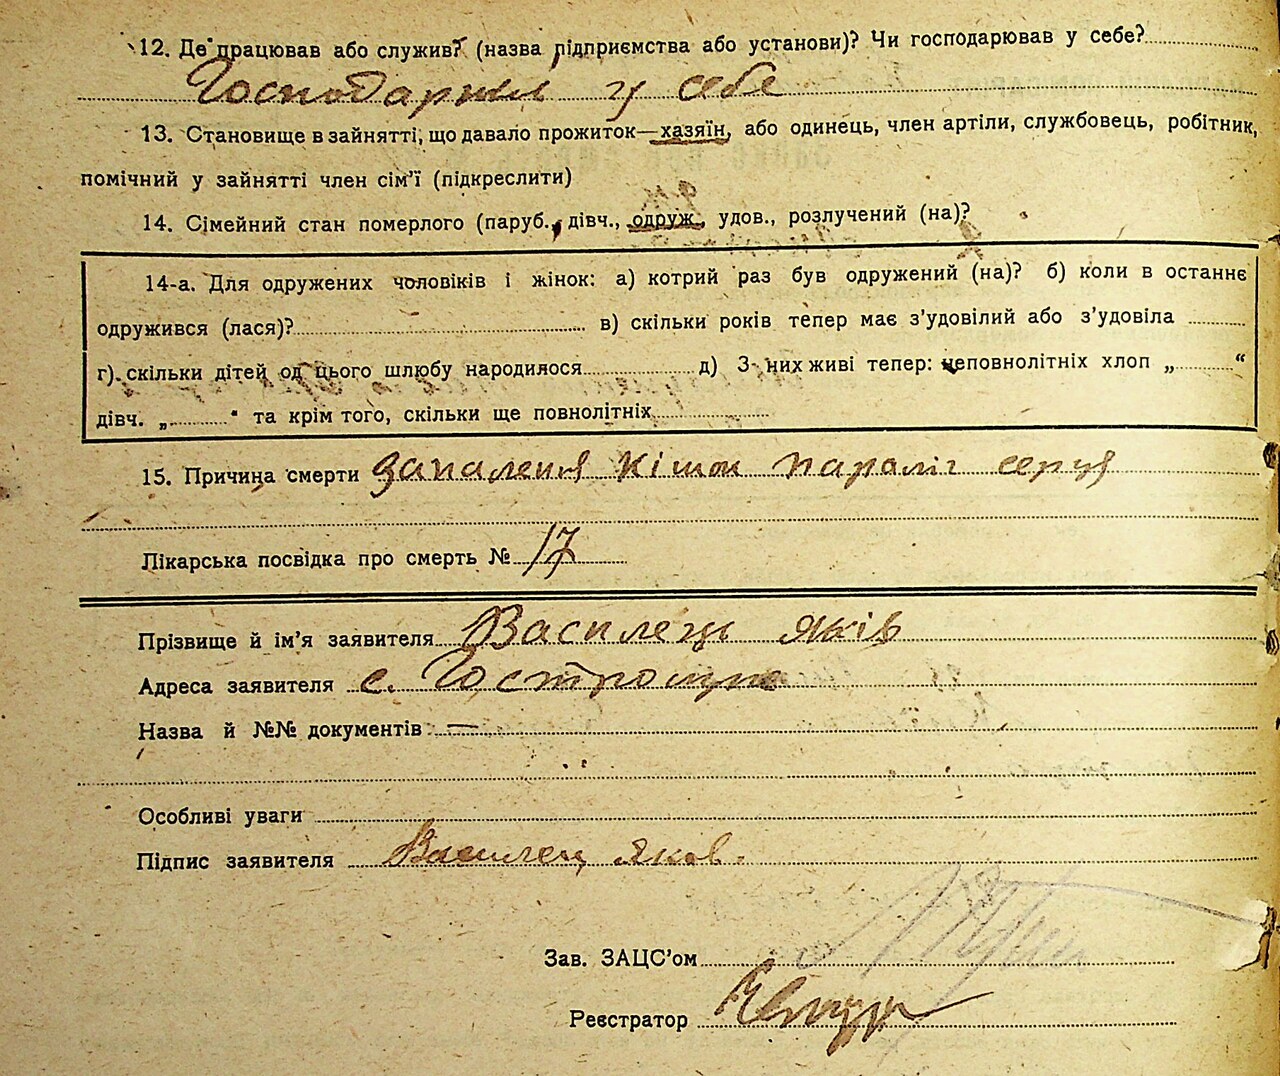 12. Де працював або служив? (назва підприємства або установи)? Чи господарював у себе?
Господарюв у себе
13. Становище в зайнятті, що давало прожиток—хазяїн, або одинець, член артіли, службовець, робітник,
помічний у зайнятті член сім’ї (підкреслити)
14. Сімейний стан померлого (паруб., дівч., одруж., удов., розлучений (на)?
14-а. Для одружених чоловіків і жінок: а) котрий раз був одружений (на)? б) коли в останнє
одружився (лася)? в) скільки років тепер має з’удовілий або з’удовіла
г) скільки дітей од цього шлюбу народилося д) З них живі тепер: неповнолітніх хлоп „ “
дівч. „ “ та крім того, скільки ще повнолітніх
15. Причина смерти запалення кішок параліг серця
Лікарська посвідка про смерть № 17
Прізвище й ім’я заявителя Василець Яків
Адреса заявителя с.
Назва й №№ документів —
Особливі уваги
Підпис заявителя Василец Яков.
Зав. ЗАЦС’ом
Реєстратор